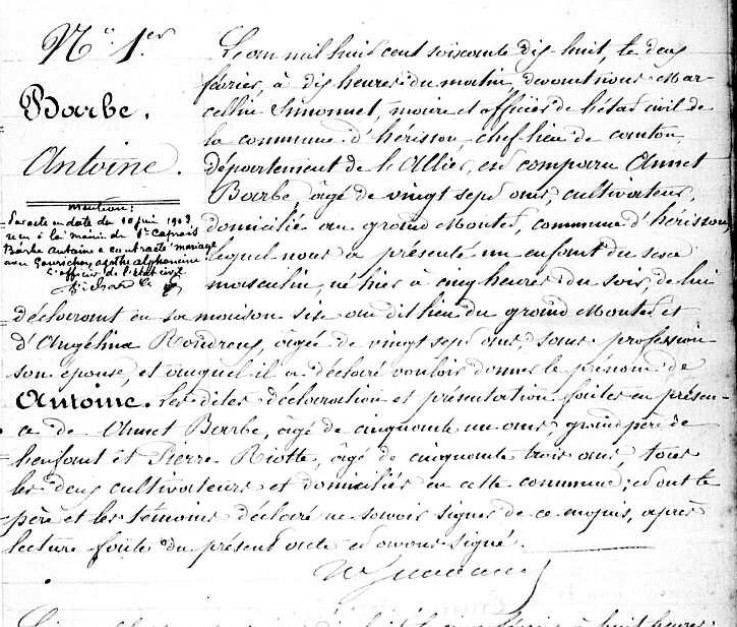 N° 1er
Barbe.
Antoine.
Mention:
Par acte en date du 10 juin 1909
reçu à la mairie de St Caprais
Barbe Antoine a contracté mariage
avec agathe alphonsine
L'officier de l'état civil
L'an mil huit cent soixante dix-huit, le deux
février, à dix heures du matin, devant nous Mar-
cellin Simonnet, maire et officier de l'état civil de
la commune d'hérisson chef lieu de canton,
département de l'Allier, est comparu Annet
Barbe, âgé de vingt sept ans, cultivateur,
domicilié au grand Montet, commune d'hérisson
lequel nous a présenté un enfant du sexe
masculin, né hier à cinq heures du soir, de lui
déclarant en sa maison sise au dit lieu du grand Montet et
d'Angélina âgée de vingt sept ans, sans profession
son épouse, et auquel il a déclaré vouloir donner le prénom de
Antoine. Les dites déclaration et présentation faites en présen-
ce de Annet Barbe, âgé de cinquante un ans grand père de
l'enfant et Pierre Riotte, âgé de cinquante trois ans, tous
les deux cultivateurs et domiciliés en cette commune; et ont le
père et les témoins déclaré ne savoir signer de ce enquis, après
lecture faite du présent acte et avons signé.